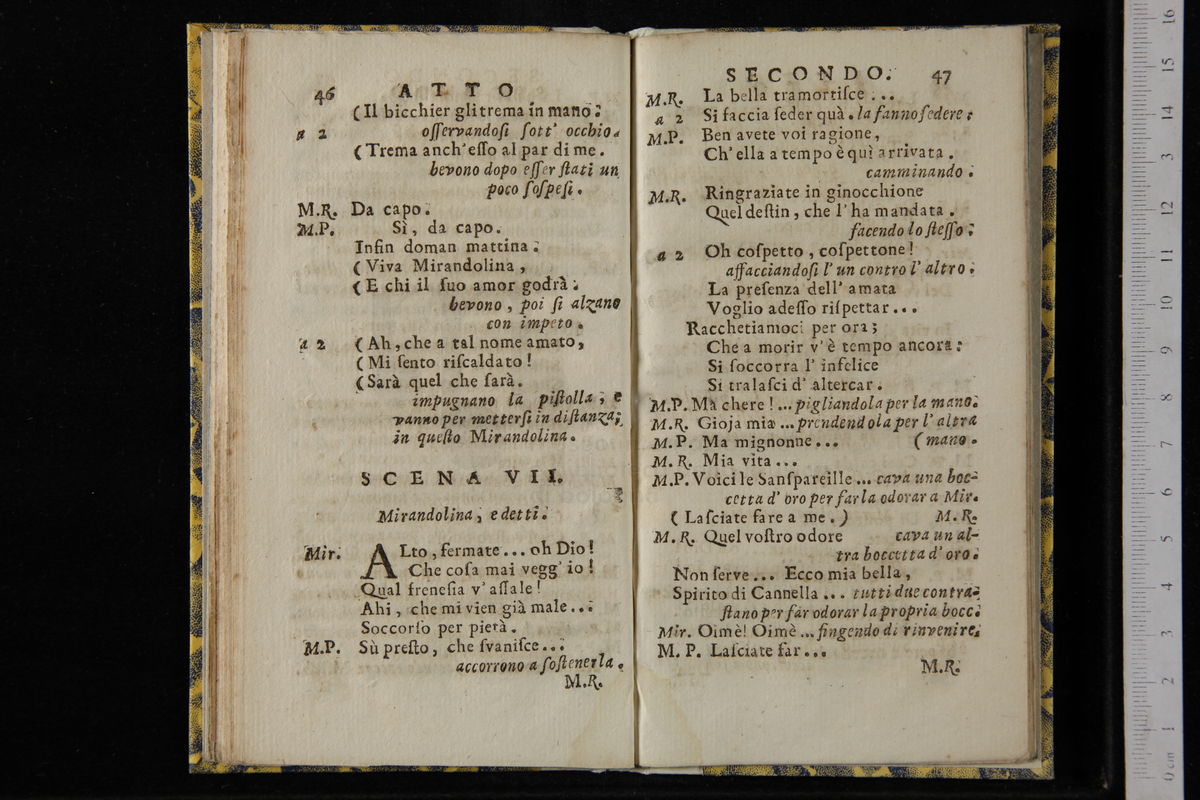 46 ATTO
(Il bicchier gli trema in mano:
a 2 oſſervandoſi ſott' occhio.
(Trema anch'eſſo al par di me.
bevono dopo eſſer ſtati un
poco ſoſpeſi.
M.R. Da capo.
M.P. Sì, da capo.
Infin doman mattina.
(Viva Mirandolina,
(E chi il ſuo amor godrà.
bevono, poi ſi alzano
con impeto.
a 2 (Ah, che a tal nome amato,
(Mi ſento riſcaldato!
(Sarà quel che ſarà.
impugnano la piſtolla; e
vanno per metterſi in diſtanza;
in queſto Mirandolina.
SCENA VII.
Mirandolina, e detti.
Mir. ALto, fermate... oh Dio!
Che coſa mai vegg' io!
Qual freneſia v'aſſale!
Ahi, che mi vien già male...
Soccorſo per pietà.
M.P. Sù preſto, che ſvaniſce...
accorrono a ſoſtenerla.
M.R.
SECONDO. 47
M.R. La bella tramortiſce...
a 2 Si faccia ſeder quà. la fanno ſedere.
M.P. Ben avete voi ragione,
Ch' ella a tempo è quì arrivata.
camminando.
M.R. Ringraziate in ginocchione
Quel deſtin, che l'ha mandata.
facendo lo ſteſſo.
a 2 Oh coſpetto, coſpettone!
affacciandoſi l' un contro l' altro.
La preſenza dell' amata
Voglio adeſſo riſpettar...
Racchetiamoci per ora;
Che a morir v'è tempo ancora:
Si ſoccorra l' infelice
Si tralaſci d' altercar.
M.P. Ma chere!... pigliandola per la mano.
M.R. Gioja mia... prendendola per l' altra
M.P. Ma mignonne... (mano.
M.R. Mia vita...
M.P. Voici le Sanſpareille... cava una boc-
cetta d' oro per farla odorar a Mir.
(Laſciate fare a me.) M.R.
M.R. Quel voſtro odore cava un al-
tra boccetta d' oro.
Non ſerve... Ecco mia bella,
Spirito di Cannella... tutti due contra-
ſtano per far odorar la propria bocc.
Mir. Oimè! Oimè... fingendo di rinvenire.
M.P. Laſciate far...
M.R.